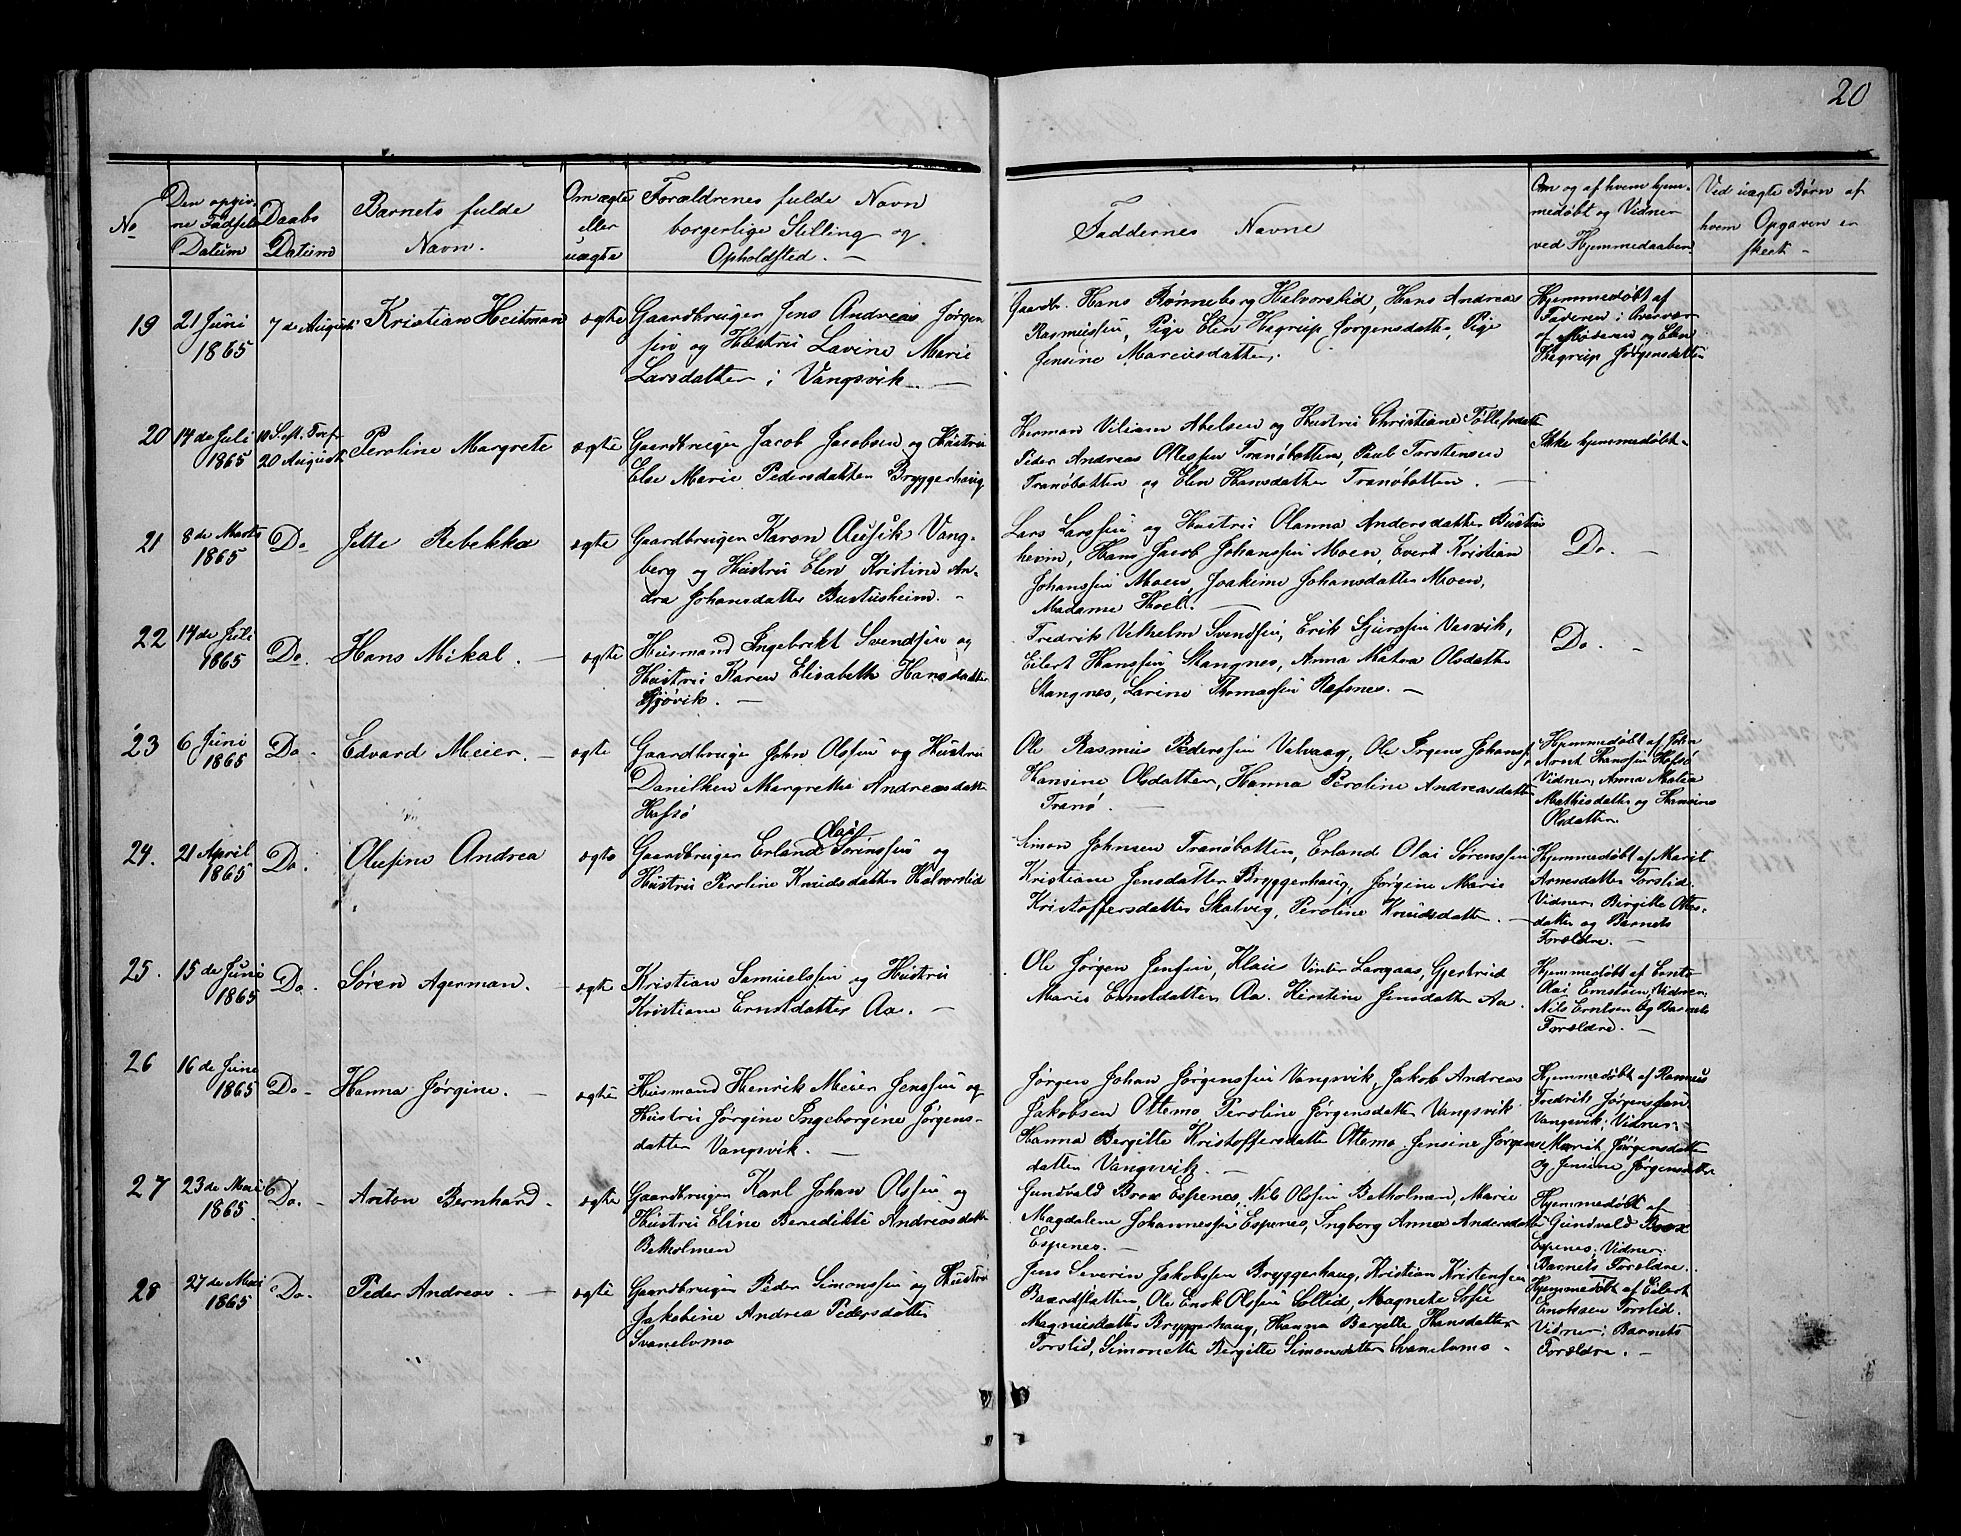 20
No
Den opgiv-
ne Fødsels
Datum
Daabs
Datum
Barnets fulde
Navn.
Om ægte
eller
uægte
Forældrenes fulde Navn
borgerlige Stilling og
Opholdsted. —
Faddernes Navne
Om og af hvem hjem-
medøbt og Vidner
ved Hjemmedaaben
Ved uægte Børn af
hvem Opgaven er
skeet —
19
21 Juni
1865
7de August
Kristian Heitman
ægte
Gaardbruger Jens Andreas Jørgen
sen og Hustru Lavine Marie
Larsdatter i Vangsvik. —
Gaardbr. Hans Rønneberg Halvorslid, Hans Andreas
Rasmussen, Pige Elen Hagrup Jørgensdatter, Pige
Jensine Mariusdatter.
Hjemmedøbt af
Faderen i Overvær
af Moderen og Elen
Hagrup Jørgensdatter
20
14de Juli
1865
10 Sept. Tref.
20 August
Peroline Margrete
ægte
Gaardbruger Jacob Jacobsen og Hustru
Else Marie Pedersdatter Bryggerhaug
Herman Viliam Abelsen og Hustru Christiane Tollefsdatter
Peder Andreas Olessen Tranøbotten, Paul Torstensen
Tranøbotten og Elen Hansdatter Tranøbotten. —
Ikke hjemmedøbt.
21
8de Marts
1865
Do.
Jette Rebekka
ægte
Gaardbruger Karon Vang-
berg og Hustru Elen Kristine An-
dra Johansdatter
Lars Larssen og Hustru Olanna Andersdatter
Hans Jacob Johanssen Moen, Evert Kristian
Johanssen Moen, Joakime Johansdatter Moen,
Madame Hoel. —
Do. —
22
14de Juli
1865
Do.
Hans Mikal. —
ægte
Husmand Ingebrikt Svendsen og
Hustru Karen Elisabeth Hansdatter
Gjøvik. —
Fredrik Velhelm Svendsen, Erik Sjurssen Vasvik,
Eilert Hanssen Stangnes, Anna Matea Olsdatter
Stangnes, Lavine Thomassen Refsnes. —
Do. —
23
6 Juni
1865
Do.
Edvard Meier. —
ægte
Gaardbruger John Olssen og Hustru
Danilken Margrethe Andreasdatter
Hofsø
Ole Rasmus Pederssen Valvaag, Ole Irgens Johanss.
Hansine Olsdatter, Hanna Peroline Andreasdatter
Tranø. —
Hjemmedøbt af John
Arnt Hanssen Hofsø
Vidner, Anna Malia
Mathisdatter og Hansine
Olsdatter.
24.
21 April
1865
Do.
Olufine Andrea
ægte
Gaardbruger Erland Olai Sørenssen og
Hustru Peroline Knudsdatter Halvorslid
Simon Johnsen Tranøbotten, Erland Olai Sørenssen
Kristiane Jensdatter Bryggerhaug, Jørgine Marie
Kristoffersdatter Skatvig, Peroline Knudsdatter. —
Hjemmedøbt af Marit
Arnesdatter Torslid.
Vidner Bergitte Ottes-
datter og Barnets
Forældre. —
25.
15de Juni
1865
Do.
Søren Agerman. —
ægte
Kristian Samuelssen og Hustru
Kristiane Ernstdatter Aa. —
Ole Jørgen Jenssen, Klaus Vinter Langaas, Gjertrud
Marie Ernstdatter Aa. Kirstine Jensdatter Aa.
Hjemmedøbt af Ernts
Olai Erntsen, Vidner
Nils Erntsen Og Barnets
Forældre. —
26
16de Juni
1865
Do.
Hanna Jørgine. —
ægte
Husmand Henrik Meier Jenssen og
Hustru Jørgine Ingeborgine Jørgens-
datter Vangsvik. —
Jørgen Johan Jørgenssen Vangsvik, Jakob Andreas
Jakobsen Ottemo, Peroline Jørgensdatter Vangsvik
Hanna Bergitte Kristoffersdatter Ottemo, Jensine Jørgens
datter Vangsvik. —
Hjemmedøbt af Rasmus
Fredrik Jørgensen
Vangsvik; Vidner:
Marit Jørgensdatter
og Jensine Jørgensdatter
27
23de Mai
1865.
Do.
Anton Bernhard —
ægte
Gaardbruger Karl Johan Olssen og
Hustru Eline Benedikte Andreasdatter
Betholmen
Gundvald Brox Espenes, Nils Olssen Betholmen, Marie
Magdalene Johannessen Espenes, Ingborg Anna Andersdatter
Espenes. —
Hjemmedøbt af
Gundvald Brox
Espenes; Vidner.
Barnets Forældre.
28
27de Mai
1865
Do.
Peder Andreas. —
ægte
Gaardbruger Peder Simonssen og Hustru
Jakobine Andrea Pedersdatter
Svanelvmo
Jens Severin Jakobssen Bryggerhaug, Kristian Kristenssen
Baardslatten, Ole Enok Olssen Sollid, Magnete Sofie
Magnusdatter Bryggerhaug, Hanna Bergitte Hansdatter
Torslid, Simonette Bergitte Simonsdatter Svanelvmo.
Hjemmedøbt af Eilert
Enoksen Torslid.
Vidner: Barnets
Forældre. —